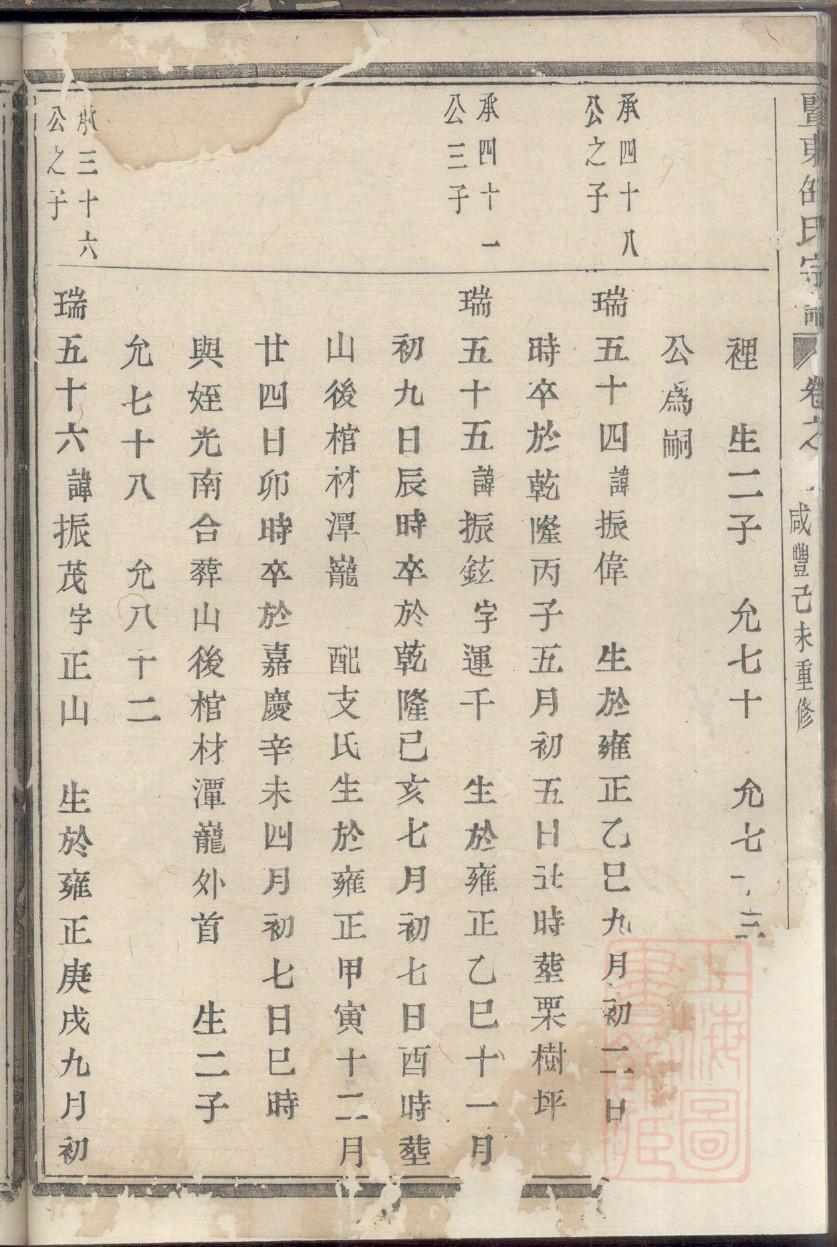 暨東邵氏宗譜 卷之
咸豐己未重修
裡 生二子 允七十 允七十三
公為嗣
承四十八
公之子
瑞五十四諱振偉 生於雍正乙巳九月初二日
時卒於乾隆丙子五月初五日 時塟栗樹坪
承四十一
公三子
瑞五十五諱振鉉字運千 生於雍正乙巳十一月
初九日辰時卒於乾隆已亥七月初七日酉時塟
山後棺材潭巃 配支氏生於雍正甲寅十二月
廿四日卯時卒於嘉慶辛未四月初七日巳時
與姪光南合葬山後棺材潭巃外首 生二子
允七十八 允八十二
承三十六
公之子
瑞五十六諱振茂字正山 生於雍正庚戌九月初
上海圖
書館藏